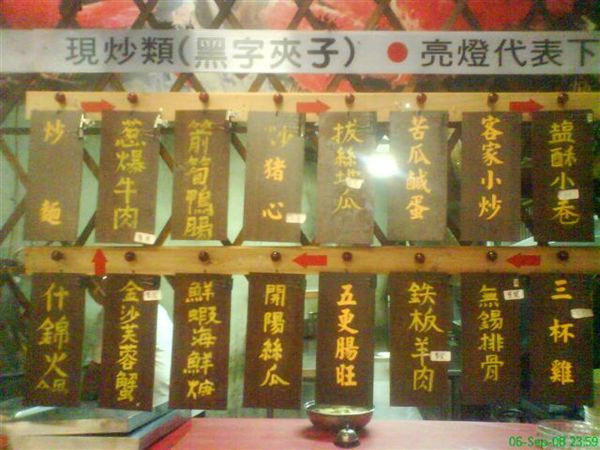 現炒類(黑字夾子) ● 亮燈代表下
炒麵
蔥爆牛肉
箭筍鴨腸
炒豬心
拔絲地瓜
苦瓜鹹蛋
客家小炒
鹽酥小卷
什錦火鍋
金沙芙蓉蟹
鮮蝦海鮮煲
開陽絲瓜
五更腸旺
鉄板羊肉
無錫排骨
三杯雞
06-Sep-08 23:59